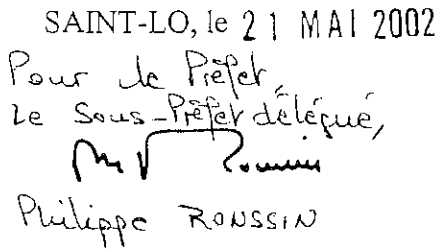 SAINT-LO, le 21 MAI 2002
Pour le Préfet,
Le Sous-Préfet délégué,
Philippe RONSSIN